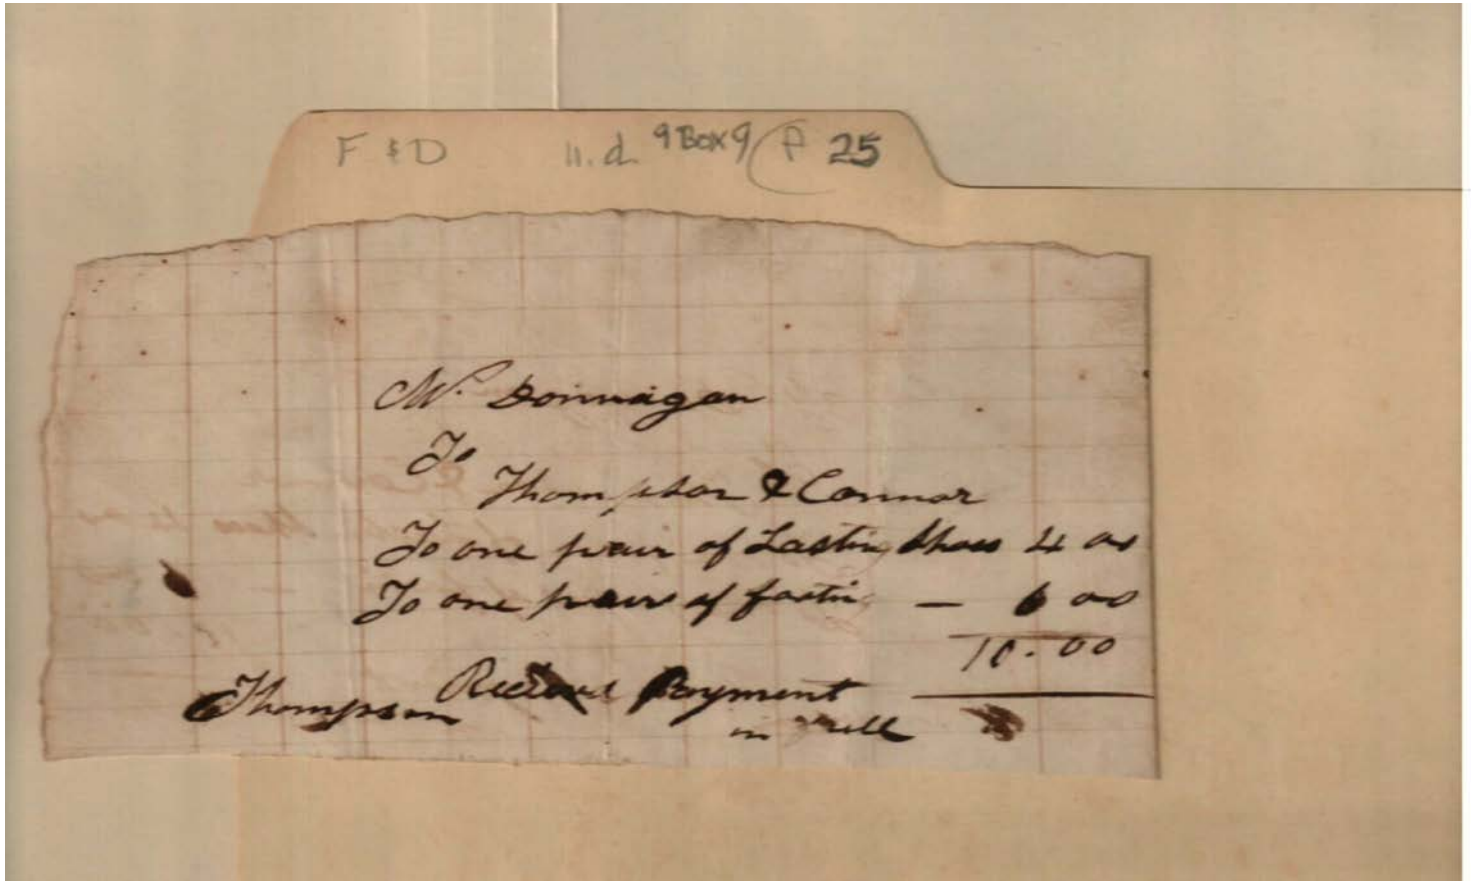 F & D n.d. 9 Box 9 P 25
Mr. Donnagan
To
Thompson & Connor
To one pair of Lasting Shoes 4 00
To one pair of fastin — 6 00
10.00
Recieved Payment
Thompson
in full